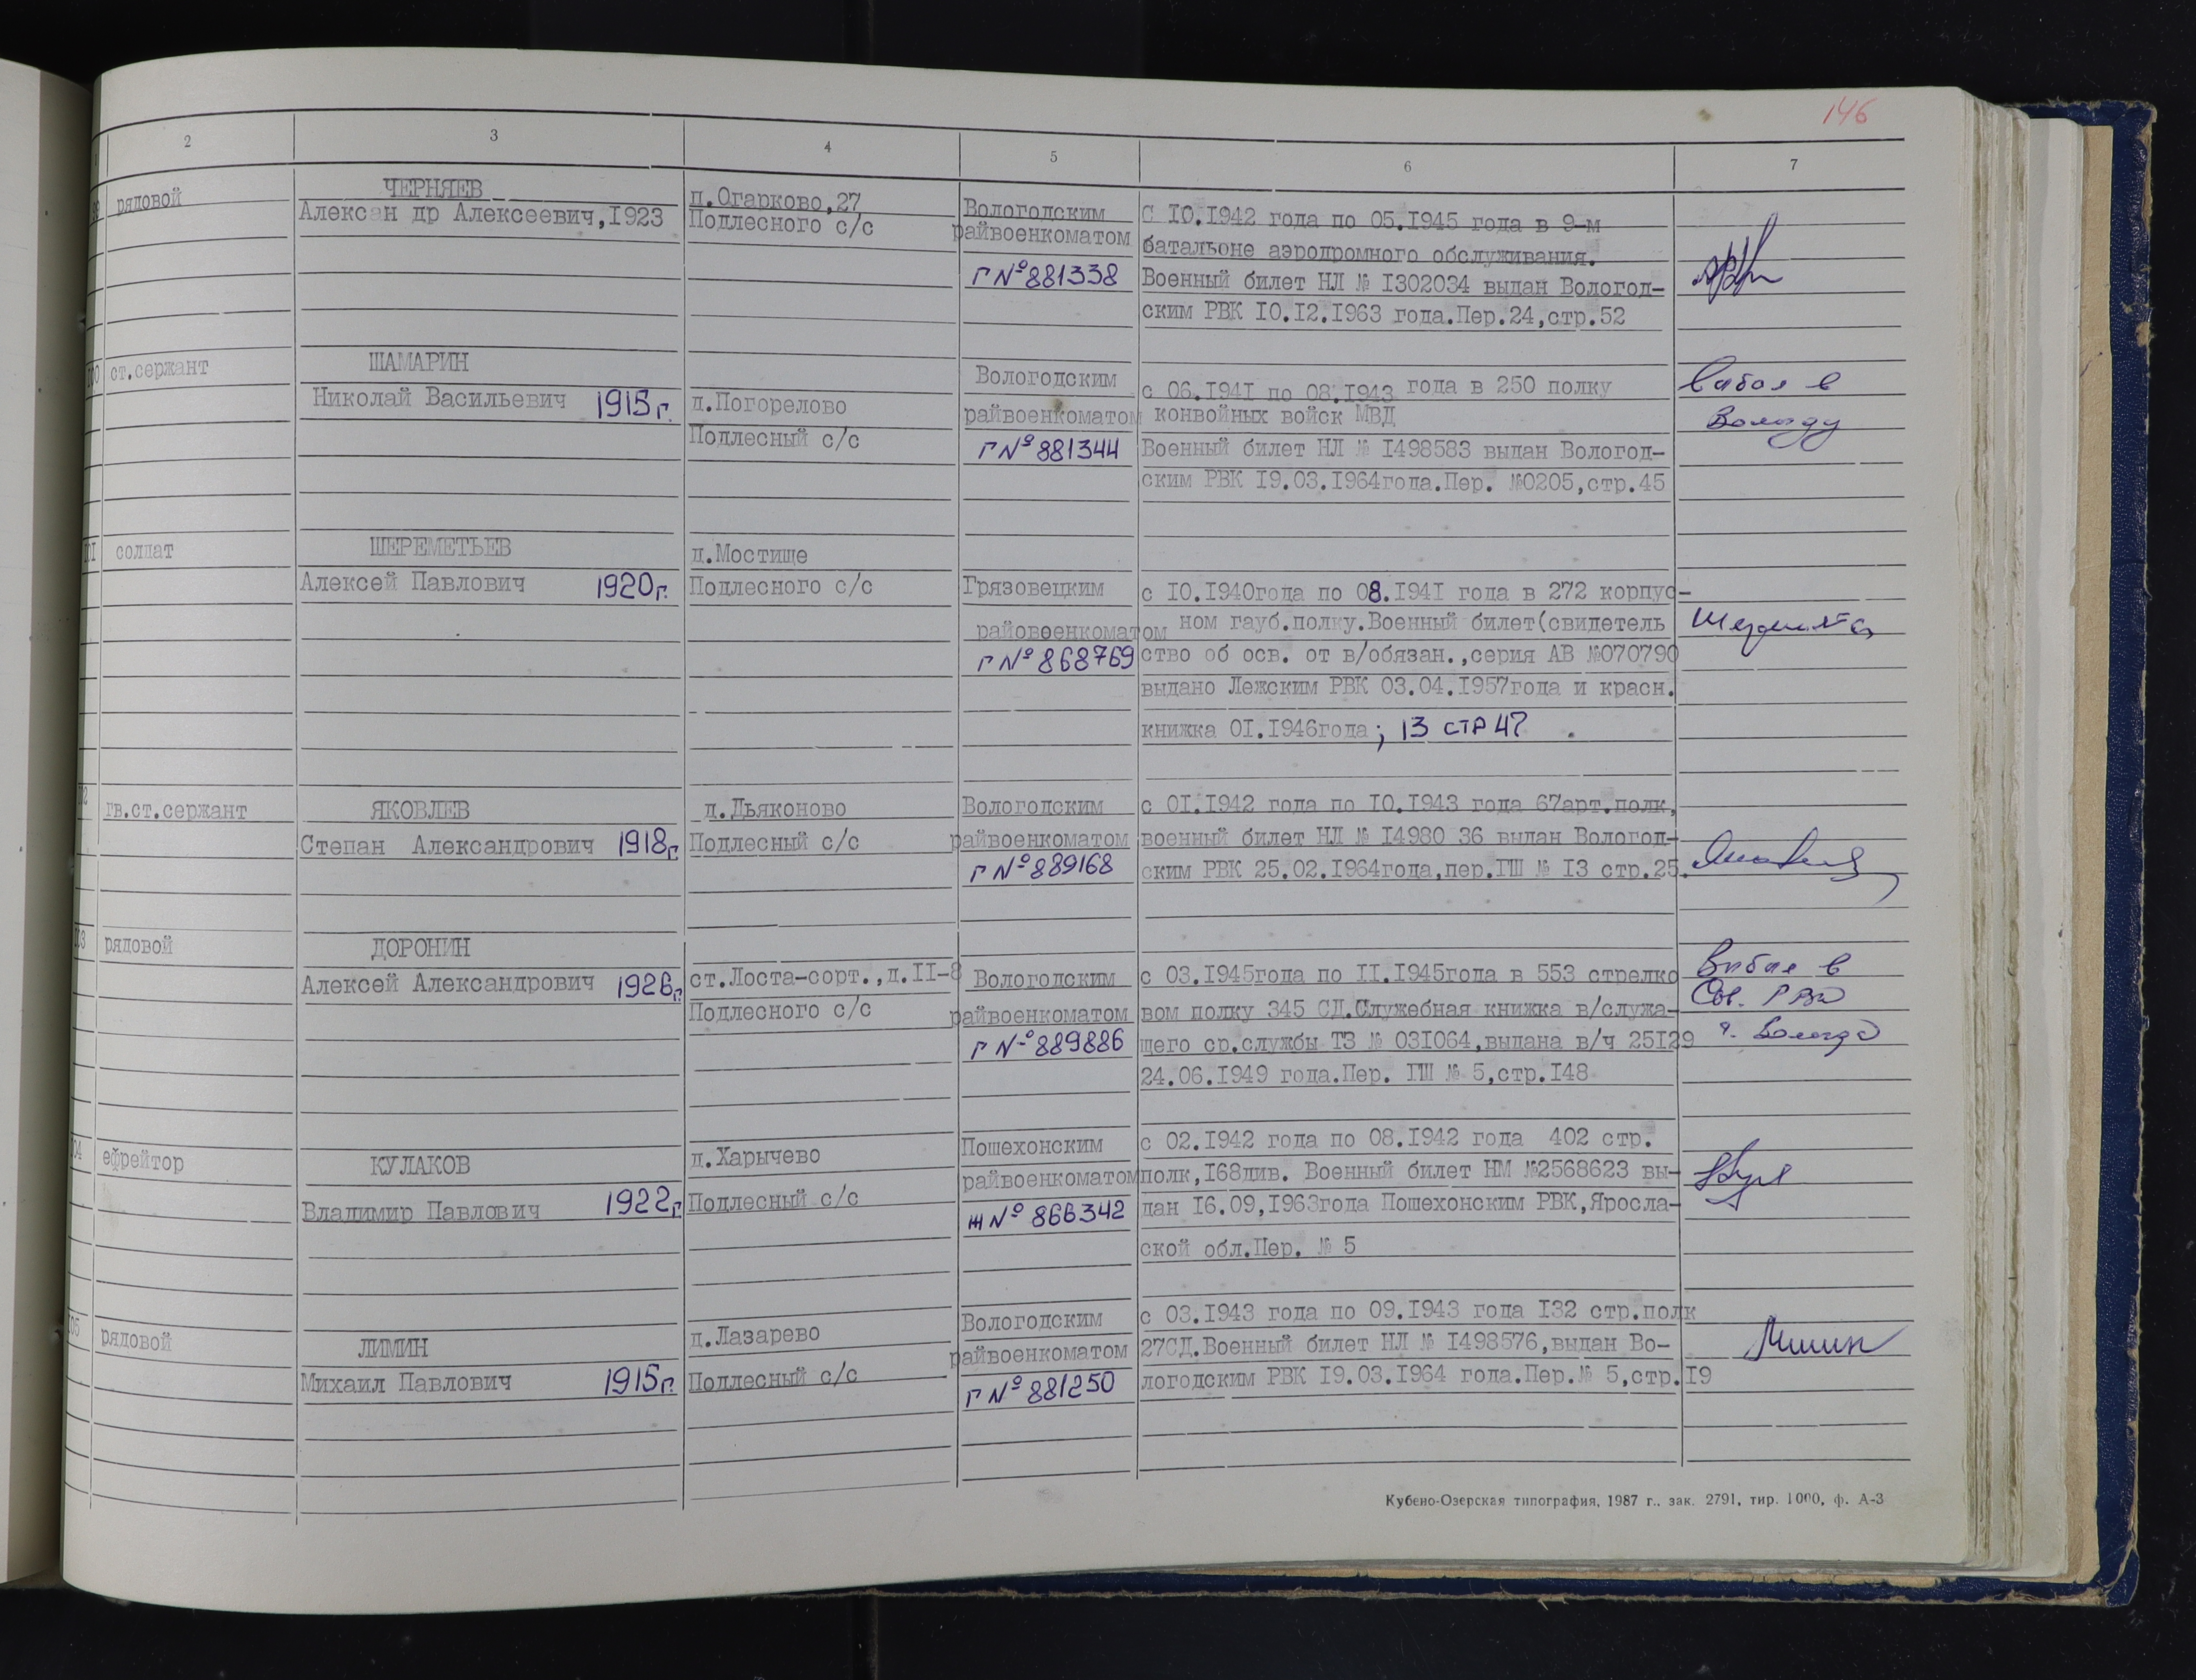 146
2 3 4 5 6 7
99 рядовой
ЧЕРНЯЕВ
Алексан др Алексеевич,I923
д.Огарково,27
Подлесного с/с
Вологодским
райвоенкоматом
Г № 881338
С IO.I942 года по 05.I945 года в 9-м
батальоне аэродромного обслуживания.
Военный билет НЛ № I302034 выдан Вологод-
ским РВК IO.I2.I963 года.Пер.24,стр.52
I00 ст.сержант
ШАМАРИН
Николай Васильевич 1915г.
д.Погорелово
Подлесный с/с
Вологодским
райвоенкоматом
Г № 881344
с 06.I94I по 08.I943 года в 250 полку
конвойных войск МВД
Военный билет НЛ № I498583 выдан Вологод-
ским РВК I9.03.I964года.Пер. №0205,стр.45
Выбыл в
Вологду
I0I солдат
ШЕРЕМЕТЬЕВ
Алексей Павлович 1920г.
д.Мостище
Подлесного с/с
Грязовецким
райовоенкоматом
Г № 868769
с IO.I940года по 08.I94I года в 272 корпус-
ном гауб.полку.Военный билет(свидетель
ство об осв. от в/обязан.,серия АВ №070790
выдано Лежским РВК 03.04.I957года и красн.
книжка OI.I946года; 13 СТР 47 .
02 гв.ст.сержант
ЯКОВЛЕВ
Степан Александрович 1918г.
д.Дьяконово
Подлесный с/с
Вологодским
райвоенкоматом
Г № 889168
с OI.I942 года по IO.I943 года 67арт.полк,
военный билет НЛ № I4980 36 выдан Вологод-
ским РВК 25.02.I964года,пер.ГШ № I3 стр.25.
03 рядовой
ДОРОНИН
Алексей Александрович 1926г.
ст.Лоста-сорт.,д.II-8
Подлесного с/с
Вологодским
райвоенкоматом
Г № 889886
с 03.I945года по II.I945года в 553 стрелко
вом полку 345 СД.Служебная книжка в/служа-
щего ср.службы ТЗ № 03I064,выдана в/ч 25I29
24.06.I949 года.Пер. ГШ № 5,стр.I48
Выбыл в
г. Вологда
04 ефрейтор
КУЛАКОВ
Владимир Павлович 1922г.
д.Харычево
Подлесный с/с
Пошехонским
райвоенкоматом
Ж № 866342
с 02.I942 года по 08.I942 года 402 стр.
полк,I68див. Военный билет НМ №2568623 вы-
дан I6.09,I963года Пошехонским РВК,Яросла-
ской обл.Пер. № 5
05 рядовой
ЛИМИН
Михаил Павлович 1915г.
д.Лазарево
Подлесный с/с
Вологодским
райвоенкоматом
Г № 881250
с 03.I943 года по 09.I943 года I32 стр.полк
27СД.Военный билет НЛ № I498576,выдан Во-
логодским РВК I9.03.I964 года.Пер.№ 5,стр.I9
Кубено-Озерская типография, 1987 г., зак. 2791, тир. 1000, ф. А-3